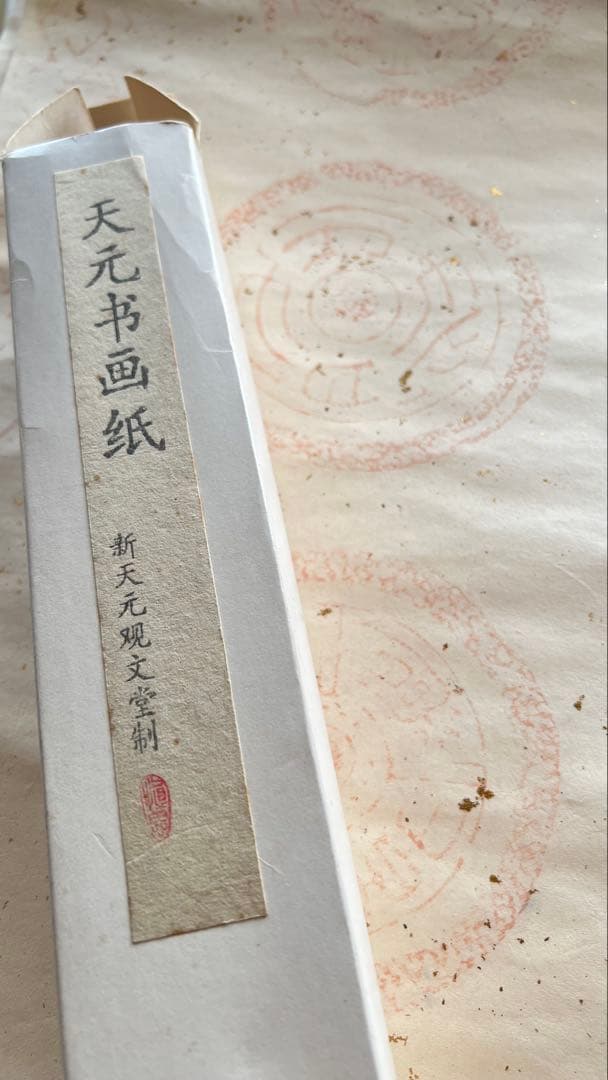 天元书画纸
新天元观文堂制